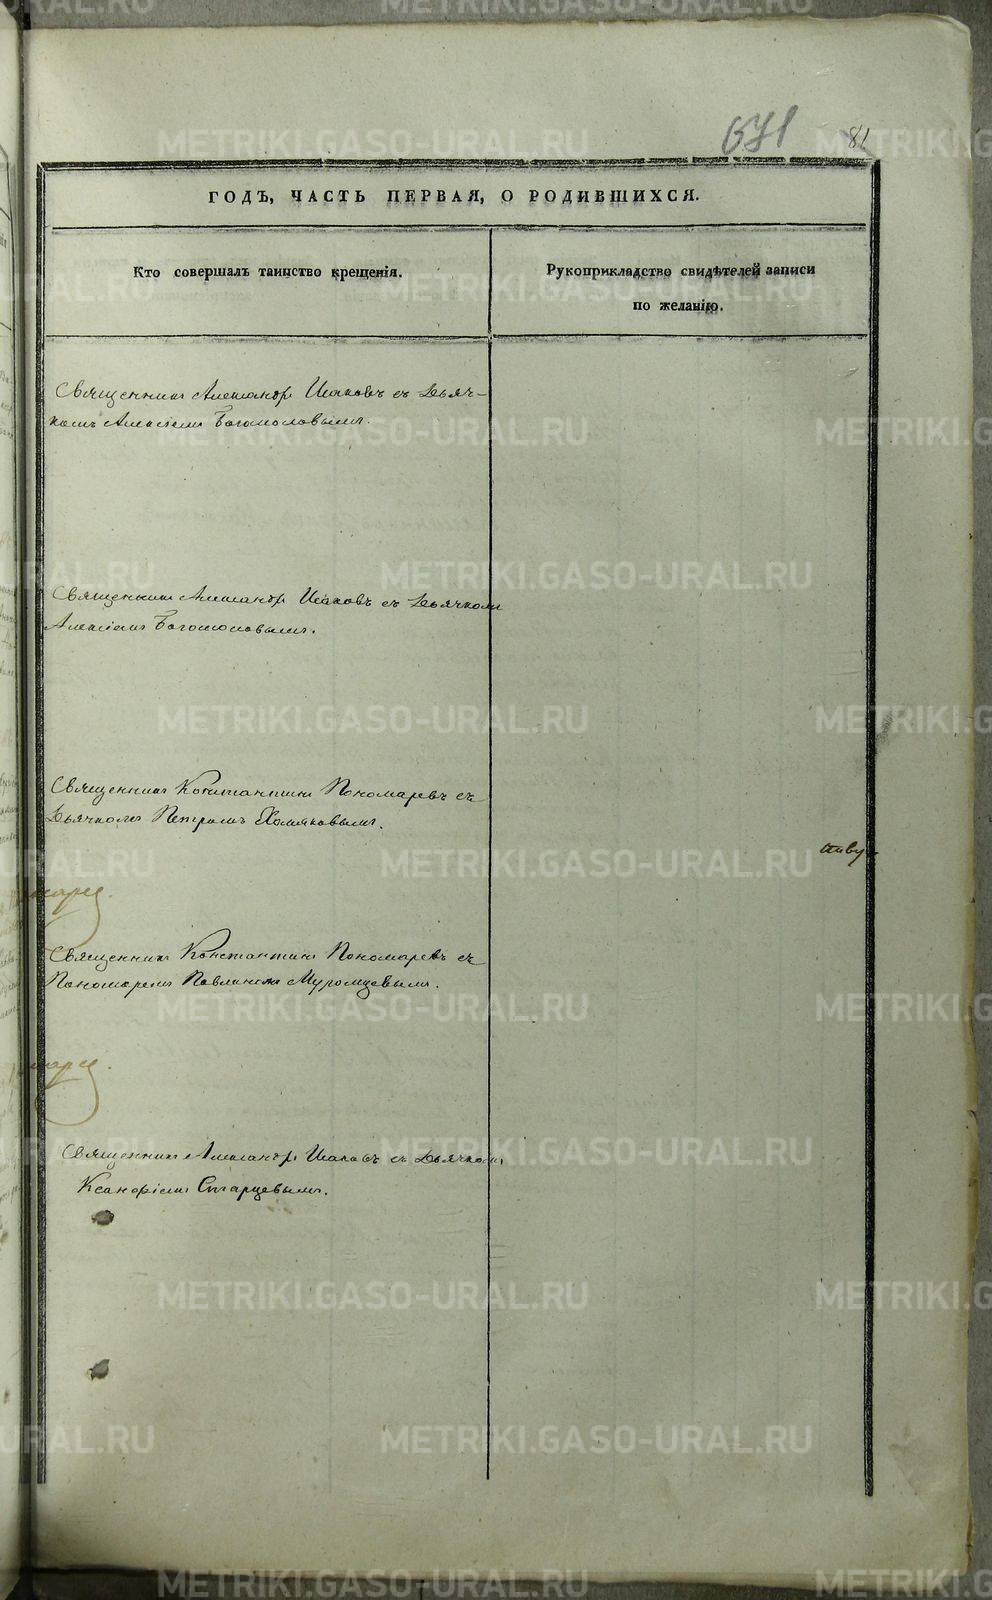 671
81
ГОДЪ, ЧАСТЬ ПЕРВАЯ, О РОДИВШИХСЯ.
Кто совершалъ таинство крещенія.
Рукоприкладство свидѣтелей записи
по желанію.
Священникъ Александръ Исаковъ съ Дьяч-
комъ Алексіемъ Богомоловымъ.
Священникъ Александръ Исаковъ съ Дьячкомъ
Алексіемъ Богомоловымъ.
Священникъ Константинъ Пономаревъ съ
Дьячкомъ Петромъ Хомяковымъ.
Священникъ Константинъ Пономаревъ съ
Пономаремъ Павлиномъ Муромцевымъ.
Священникъ Александръ Исаковъ съ Дьячкомъ
Ксанфіемъ Старцевымъ.
METRIKI.GASO-URAL.RU